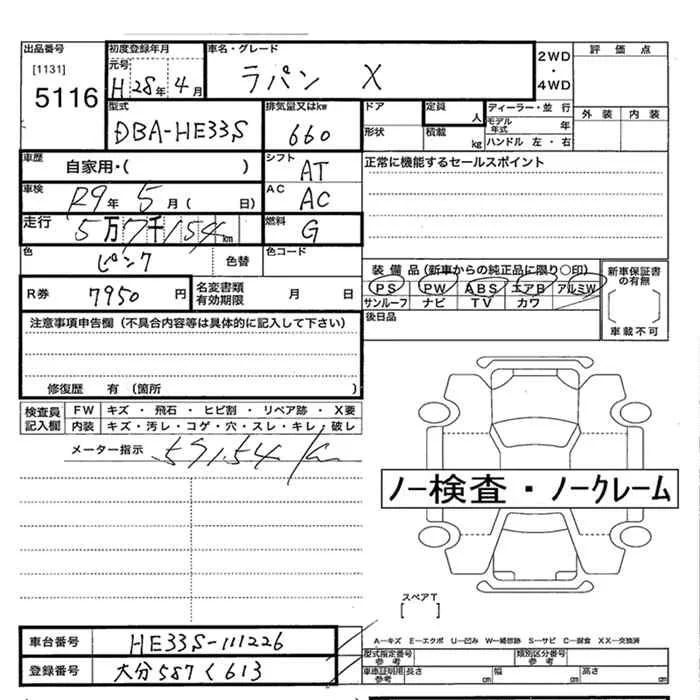 出品番号 初度登録年月 車名・グレード 評価点
[1131] 元号 2WD
5116 H 28年 4月 ラパン X ・
4WD
型式 排気量又はkw ドア 定員 人 ディーラー・並行 外装 内装
DBA-HE33S 660 形状 積載 kg モデル年式 年
ハンドル 左・右
車歴 自家用・( ) シフト AT 正常に機能するセールスポイント
車検 R9年 5月 ( 日) AC AC
走行 5万7千154km 燃料 G
色 ピンク 色替 色コード
装備品(新車からの純正品に限り○印) 新車保証書の有無
R券 7950円 名変書類有効期限 月 日 PS PW ABS エアB アルミW
サンルーフ ナビ TV カワ
注意事項申告欄(不具合内容等は具体的に記入して下さい) 後日品 車載不可
修復歴 有(箇所 )
検査員記入欄 FW キズ・飛石・ヒビ割・リペア跡・X要
内装 キズ・汚レ・コゲ・穴・スレ・キレ・破レ
メーター指示 57154 km
ノー検査・ノークレーム
スペアT
[ ]
A-キズ E-エクボ U-凹み W-補修跡 S-サビ C-腐食 XX-交換済
車台番号 HE33S-111226 型式指定番号 参考 類別区分番号 参考
登録番号 大分587く613 車庫証明用 参考 長さ cm 幅 cm 高さ cm